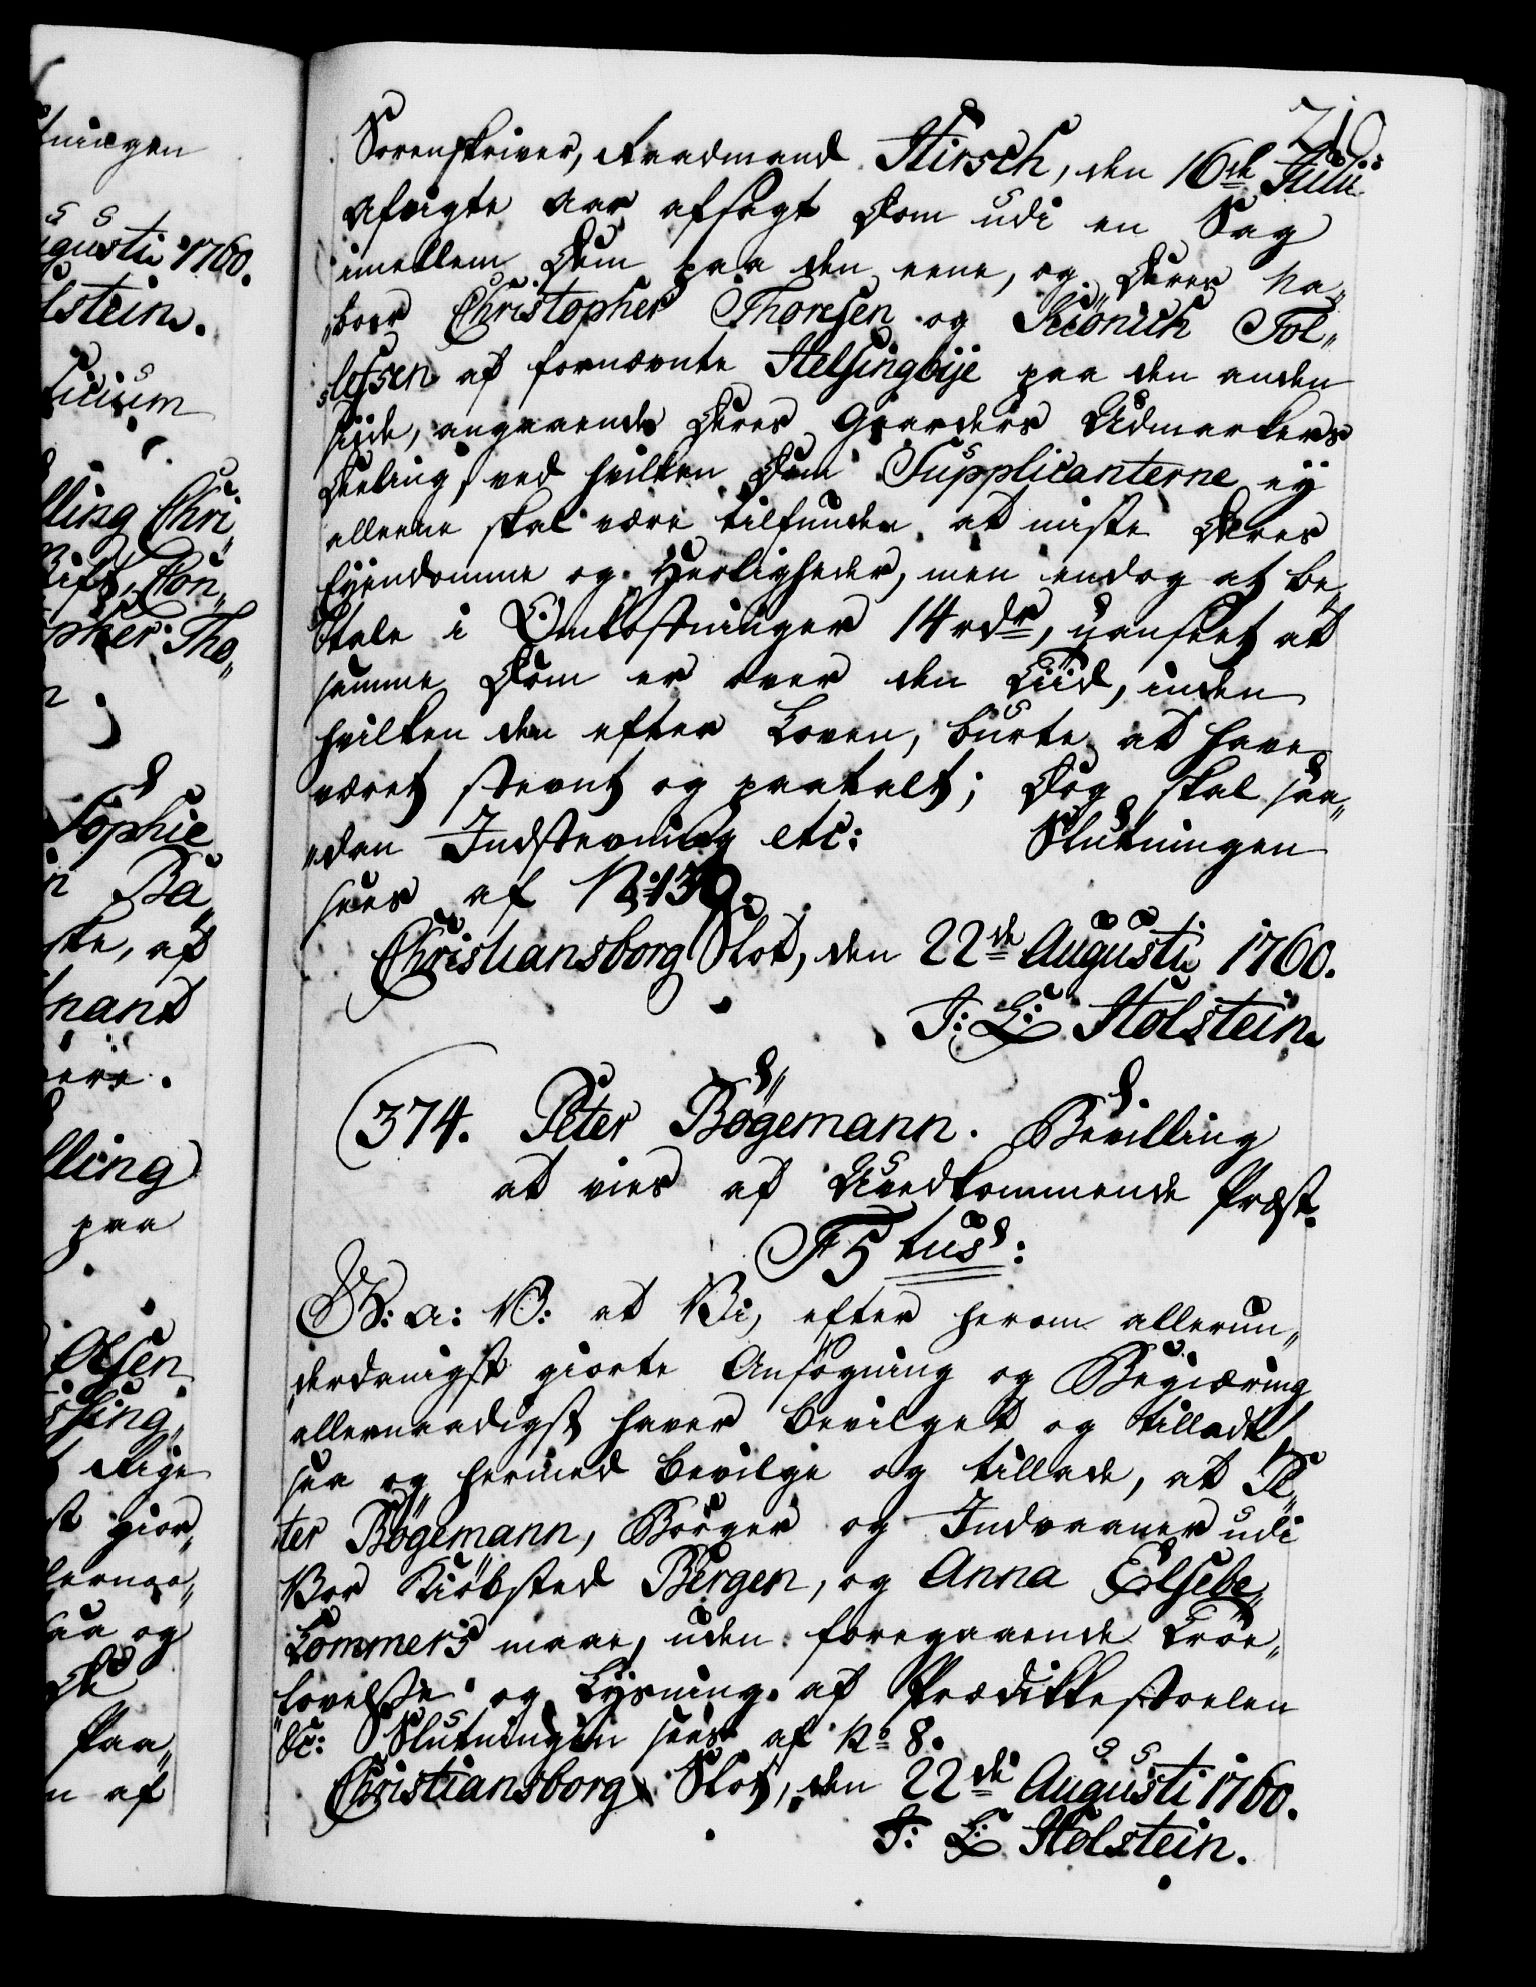 210
Sorenskriver, Raadmand Hirsch, den 16de Julii
afvigte Aar afsagt Dom udi en Sag
imellem Dem paa den eene, og Deres Na„
„boer Christopher Thoresen og Siönich Tol„
„lefsen af fornævnte Helsingbije paa den anden
siide, angaaende Deres Gaarders Udmarkers
Deeling, ved hvilken Dom Supplicanterne ey
alleene skal være tilfunden at miste Deres
Eyendomme og Herligheder, men endog at be„
„tale i Omkostninger 14 rdr, uanseet at
samme Dom er over den Tiid, inden
hvilken den efter Loven, burte at have
været stevnt og paatalt; Dog skal saa„
„dan Indstevning etc: Slutningen
sees af No 139.
Christiansborg Slot, den 22de Augusti 1760.
J: L: Holstein.
(374. Peter Bögemann. Bevilling
at vies af Uvedkommende Præst.
F5tus:
G: A: V: at Vi, efter herom allerun„
„derdanigst giorte Ansögning og Begiæring
allernaadigst haver bevilget og tilladt
saa og hermed bevilge og tillade, at Pe„
„ter Bögemann, Borger og Indvaaner udi
Vor Kiöbsted Bergen, og Anna Elsebe
Lommers maae, uden foregaaende Troe„
„lovelse og Lysning af Prædikkestoelen
&c: Slutningen sees af No 8.
Christiansborg Slot, den 22de Augusti 1760.
J: L: Holstein.